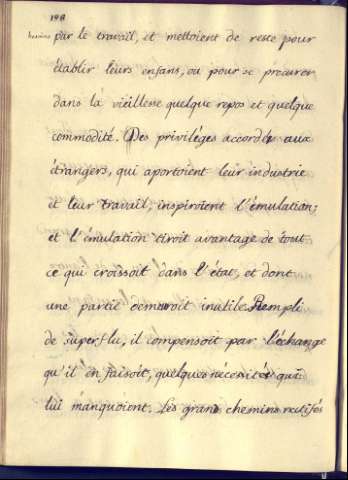 198
par le travail, et mettoient de reste pour
établir leurs enfans, ou pour se procurer
dans la vieillesse quelque repos et quelque
commodité. Des privilèges accordés aux
étrangers, qui aportoient leur industrie
et leur travail, inspiroient l'émulation;
et l'émulation tiroit avantage de tout
ce qui croissoit dans l'état, et dont
une partie demeuroit inutile. Rempli
de superflu, il compensoit par l'échange
qu'il en faisoit, quelques nécessités qui
lui manquoient. Les grans chemins